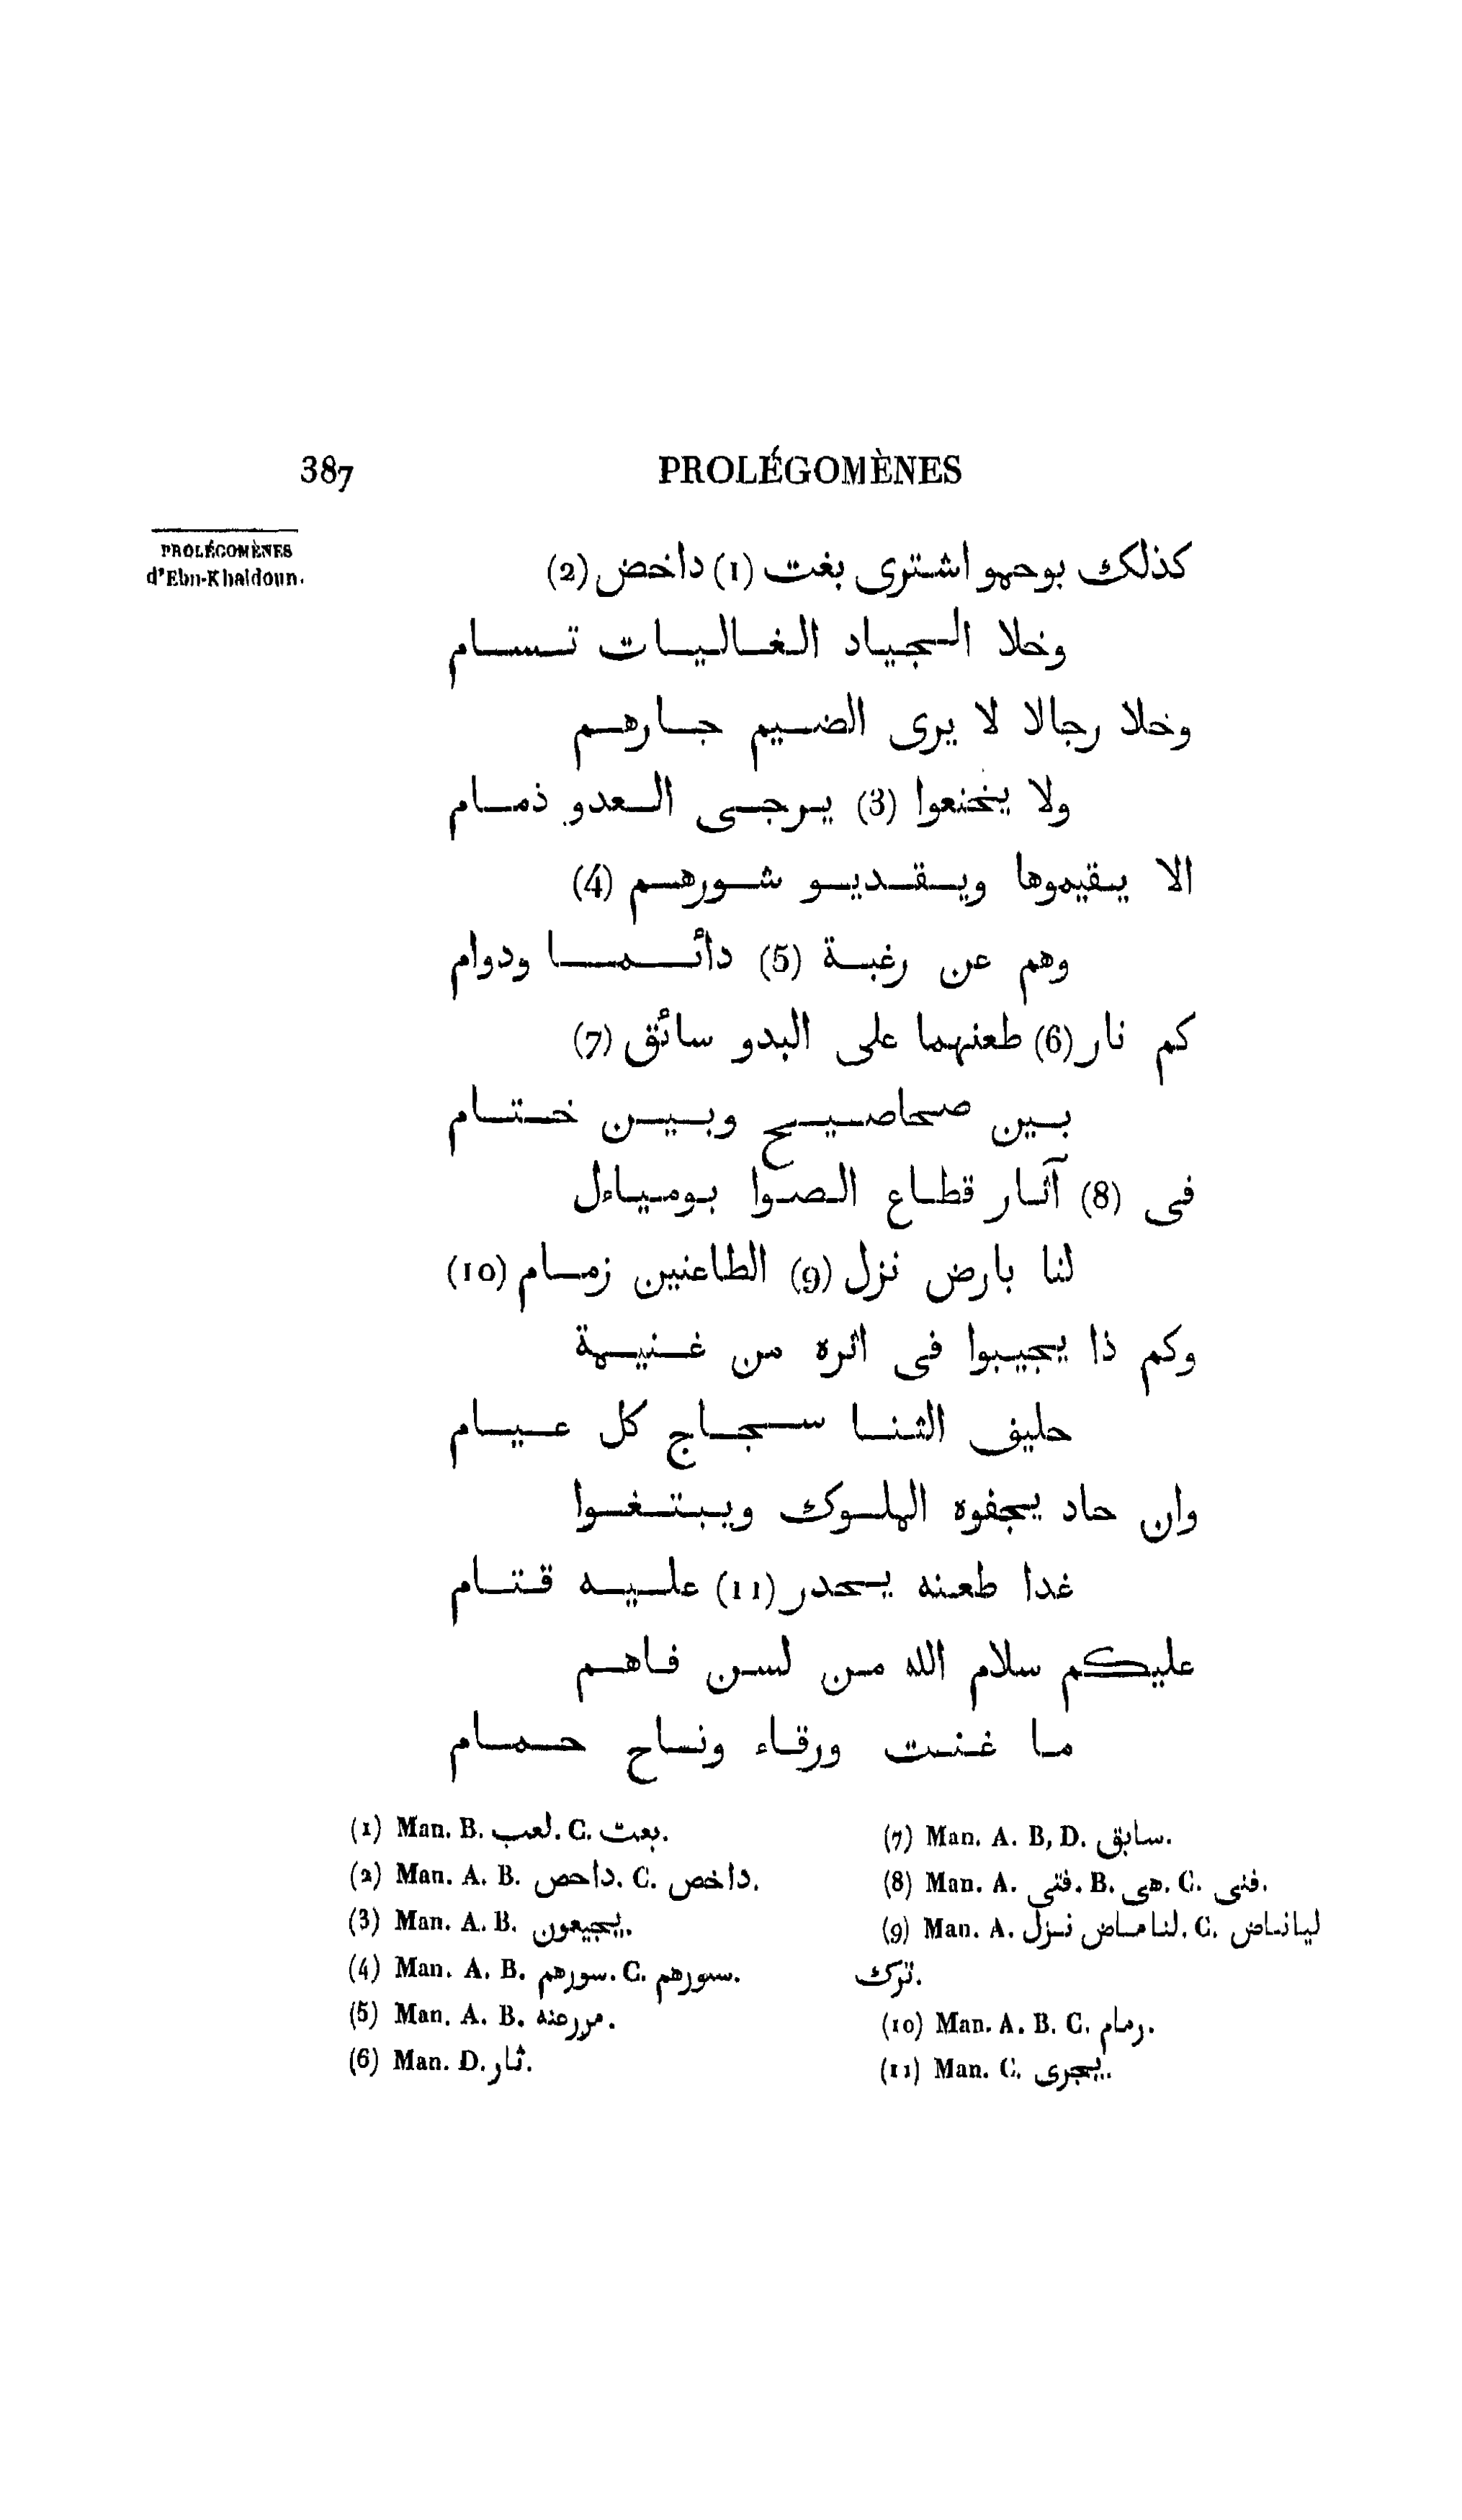 387 PROLÉGOMÈNES
PROLÉGOMÈNES
d'Ebn-Khaldoun.
كذلك بوحمو اشترى بغت (1) داخض (2)
وخلا الجياد الغاليات تسام
وخلا رجالا لا يرى الضيم جارهم
ولا يخنعوا (3) يرجى العدو ذمام
الا يقيموها ويقديو شورهم (4)
وهم عن رغبة (5) دائما ودوام
كم نار (6) طعنهما على البدو سائق (7)
بين صحاصيح وبين ختام
فى (8) آثار قطاع الصوا بومياءل
لنا بارض نزل (9) الطاعنين زمام (10)
وكم ذا يجيبوا فى اثره من غنيمة
حليف الثنا سجاج كل عيام
وان حاد يجفوه الملوك ويبتغوا
غدا طعنه يحدر (11) عليه قتام
عليكم سلام الله من لسن فاهم
ما غنت ورقاء ونساح حمام
(1) Man. B. لعب. C. بعت.
(2) Man. A. B. داحص. C. داخص.
(3) Man. A. B. يجيعون.
(4) Man. A. B. سورهم. C. سسورهم.
(5) Man. A. B. مررعنه.
(6) Man. D. ثار.
(7) Man. A. B, D. سابق.
(8) Man. A. فتى. B. هى. C. فنى.
(9) Man. A. لنا ماض نزل. C. لياناض
ترك.
(10) Man. A. B. C. رمام.
(11) Man. C. يجرى.